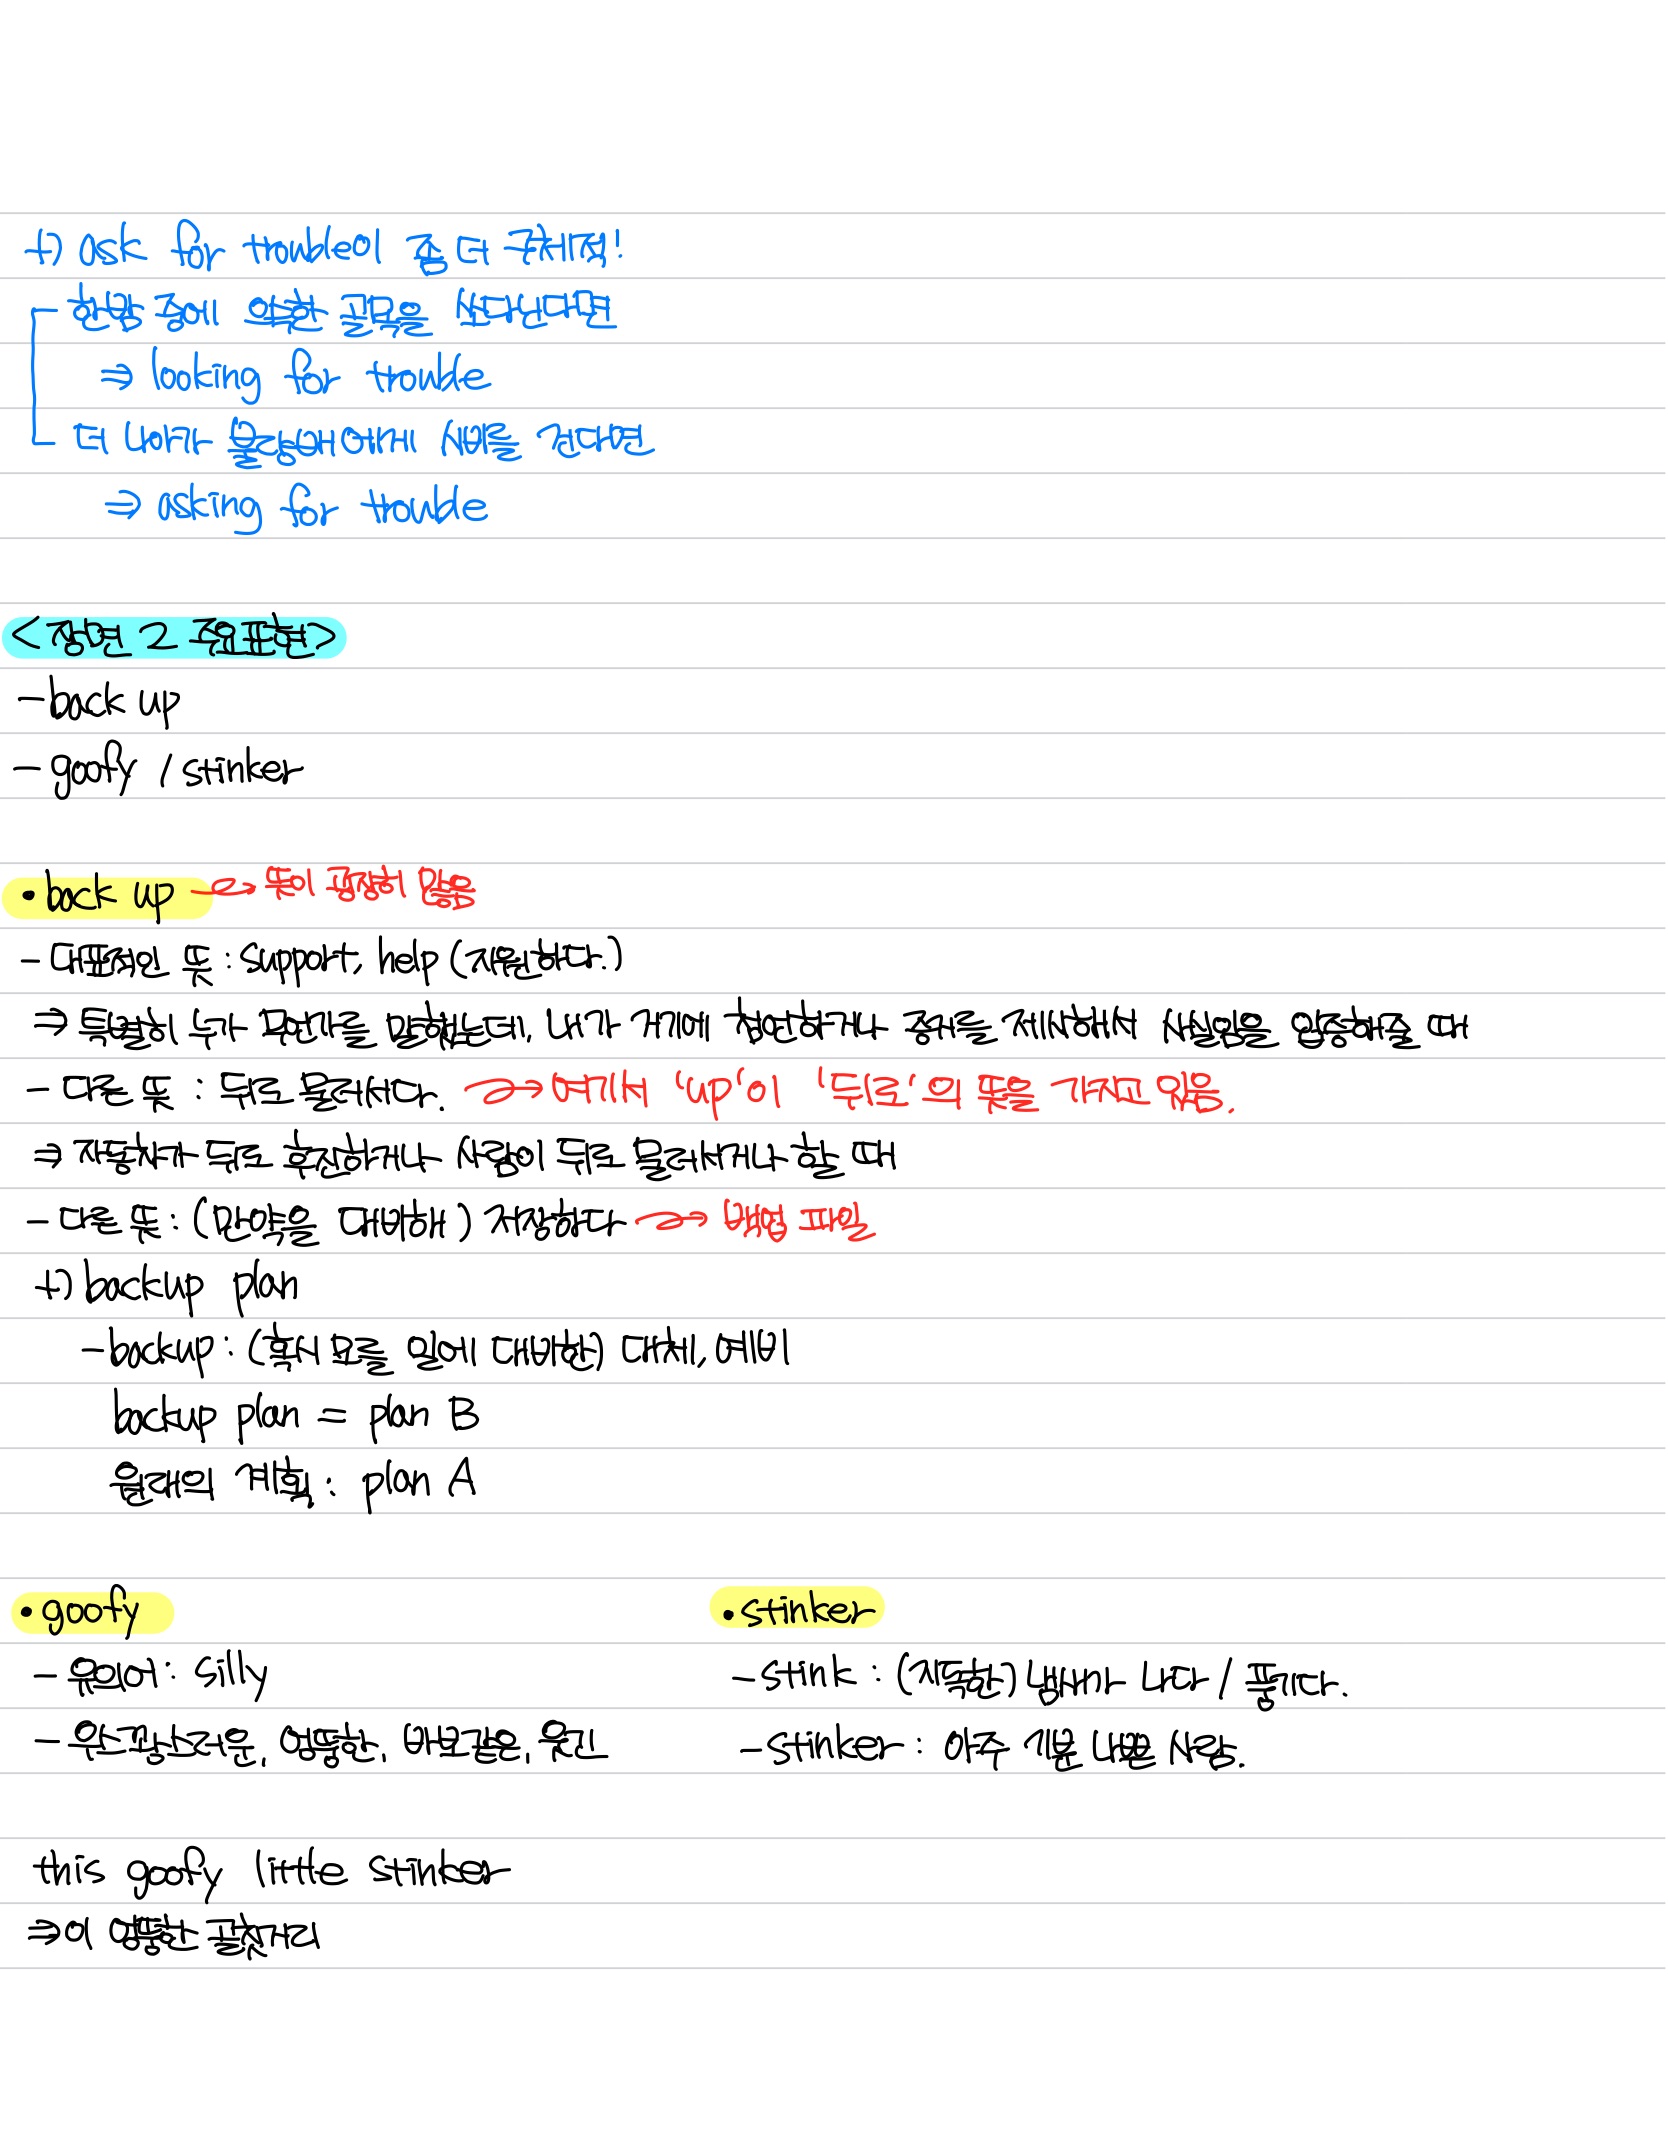 +) ask for trouble이 좀 더 구체적!
- 한밤 중에 으슥한 골목을 쏘다닌다면
⇒ looking for trouble
- 더 나아가 불량배에게 시비를 건다면
⇒ asking for trouble
<장면 2 주요표현>
- back up
- goofy / stinker
• back up → 뜻이 굉장히 많음
- 대표적인 뜻 : support, help (지원하다.)
⇒ 특별히 누가 무언가를 말했는데, 내가 거기에 첨언하거나 증거를 제시해서 사실임을 입증해줄 때
- 다른 뜻 : 뒤로 물러서다. → 여기서 'up'이 '뒤로'의 뜻을 가지고 있음.
⇒ 자동차가 뒤로 후진하거나 사람이 뒤로 물러서거나 할 때
- 다른 뜻 : (만약을 대비해) 저장하다 → 백업 파일
+) backup plan
- backup : (혹시 모를 일에 대비한) 대체, 예비
backup plan = plan B
원래의 계획 : plan A
• goofy
- 유의어 : silly
- 우스꽝스러운, 엉뚱한, 바보같은, 웃긴
• stinker
- stink : (지독한) 냄새가 나다 / 풍기다.
- stinker : 아주 기분 나쁜 사람.
this goofy little stinker
⇒ 이 엉뚱한 골칫거리